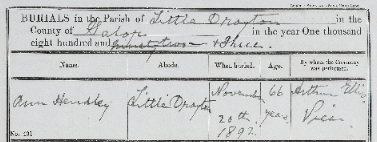 BURIALS in the Parish of Little Drayton in the
County of Salop in the year One thousand
eight hundred and ninety two & three
Name. Abode. When buried. Age. By whom the Ceremony was performed.
Ann Hendley Little Drayton November 20th 1892. 66 years Arthur Vicar
No.